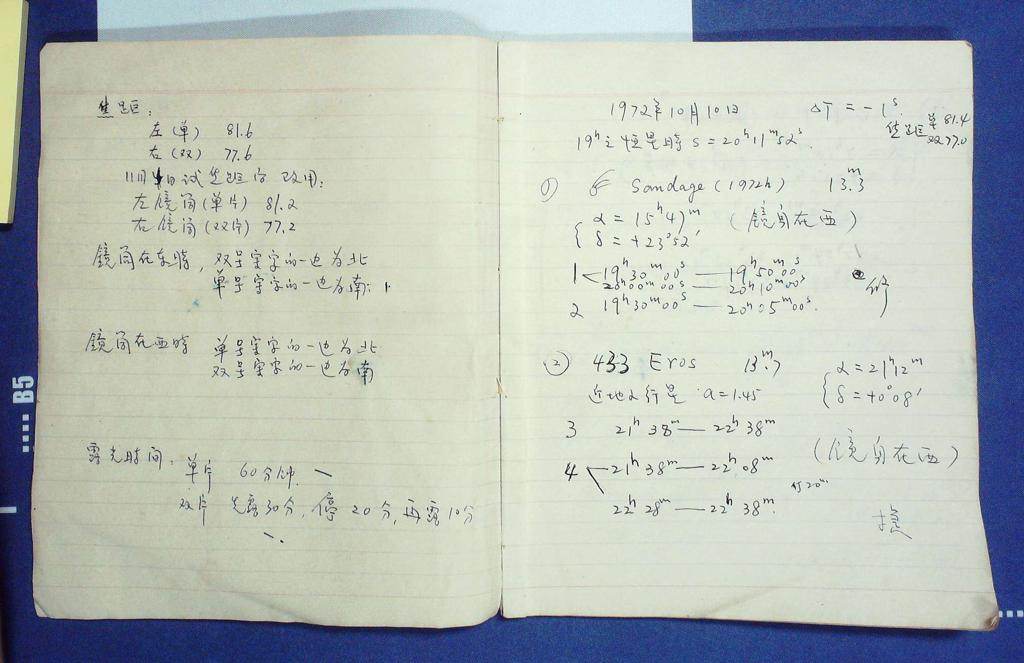 焦距:
左(单) 81.6
右(双) 77.6
11月4日试焦距后改用:
左镜筒(单片) 81.2
右镜筒(双片) 77.2
镜筒在东时, 双号字的一边为北
单号字的一边为南.
镜筒在西时 单号字的一边为北
双号字的一边为南
露光时间.
单片 60分钟.
双片 先露30分, 停20分, 再露10分
1972年10月10日 ΔT = -1ˢ
焦距 单 81.4
双 77.0
19ʰ之恒星时 S = 20ʰ11ᵐ52ˢ.
① Sandage (1972h) 13ᵐ.3
α = 15ʰ47ᵐ (镜身在西)
δ = +23°52′
1 19ʰ30ᵐ00ˢ — 19ʰ50ᵐ00ˢ
20ʰ00ᵐ00ˢ — 20ʰ10ᵐ00ˢ
2 19ʰ30ᵐ00ˢ — 20ʰ05ᵐ00ˢ.
② 433 Eros 13ᵐ.7 α = 21ʰ12ᵐ
近地小行星 a = 1.45 δ = +0°08′
3 21ʰ38ᵐ — 22ʰ38ᵐ
4 21ʰ38ᵐ — 22ʰ08ᵐ (镜身在西)
停20ᵐ
22ʰ28ᵐ — 22ʰ38ᵐ.
B5